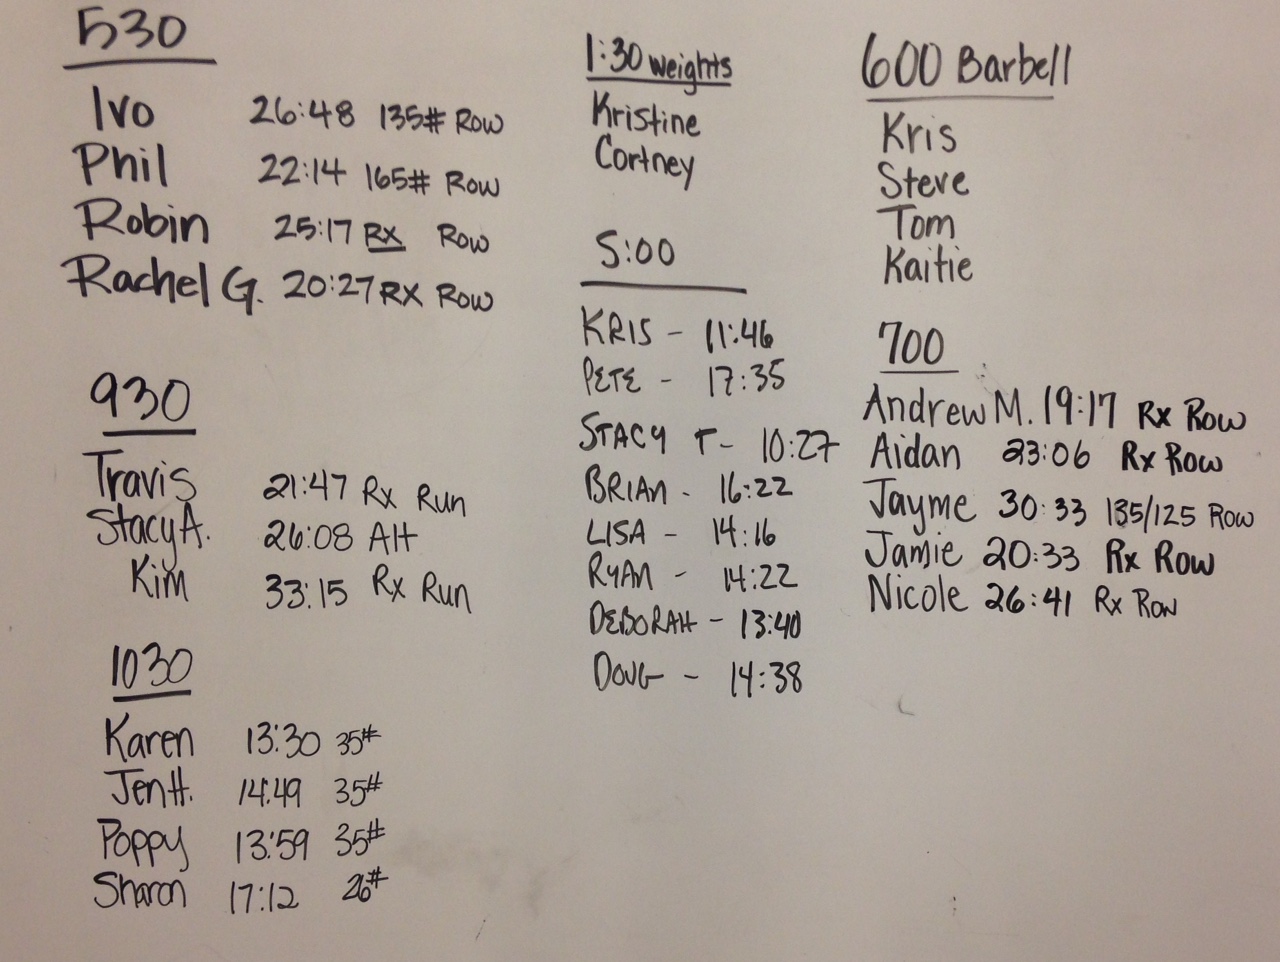 530
Ivo 26:48 135# Row
Phil 22:14 165# Row
Robin 25:17 Rx Row
Rachel G. 20:27 RX Row
930
Travis 21:47 Rx Run
Stacy A. 26:08 Alt
Kim 33:15 Rx Run
1030
Karen 13:30 35#
Jen H. 14:49 35#
Poppy 13:59 35#
Sharon 17:12 26#
1:30 weights
Kristine
Cortney
5:00
KRIS - 11:46
PETE - 17:35
STACY T - 10:27
BRIAN - 16:22
LISA - 14:16
RYAN - 14:22
DEBORAH - 13:40
DOUG - 14:38
600 Barbell
Kris
Steve
Tom
Kaitie
700
Andrew M. 19:17 Rx Row
Aidan 23:06 Rx Row
Jayme 30:33 135/125 Row
Jamie 20:33 Rx Row
Nicole 26:41 Rx Row